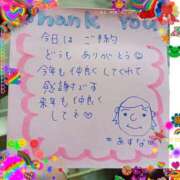 Thank you
今日は ご予約
どうも ありがとう☺
今年も仲良くしてくれて
感謝です
来年も仲良く
してネ♡
あすな